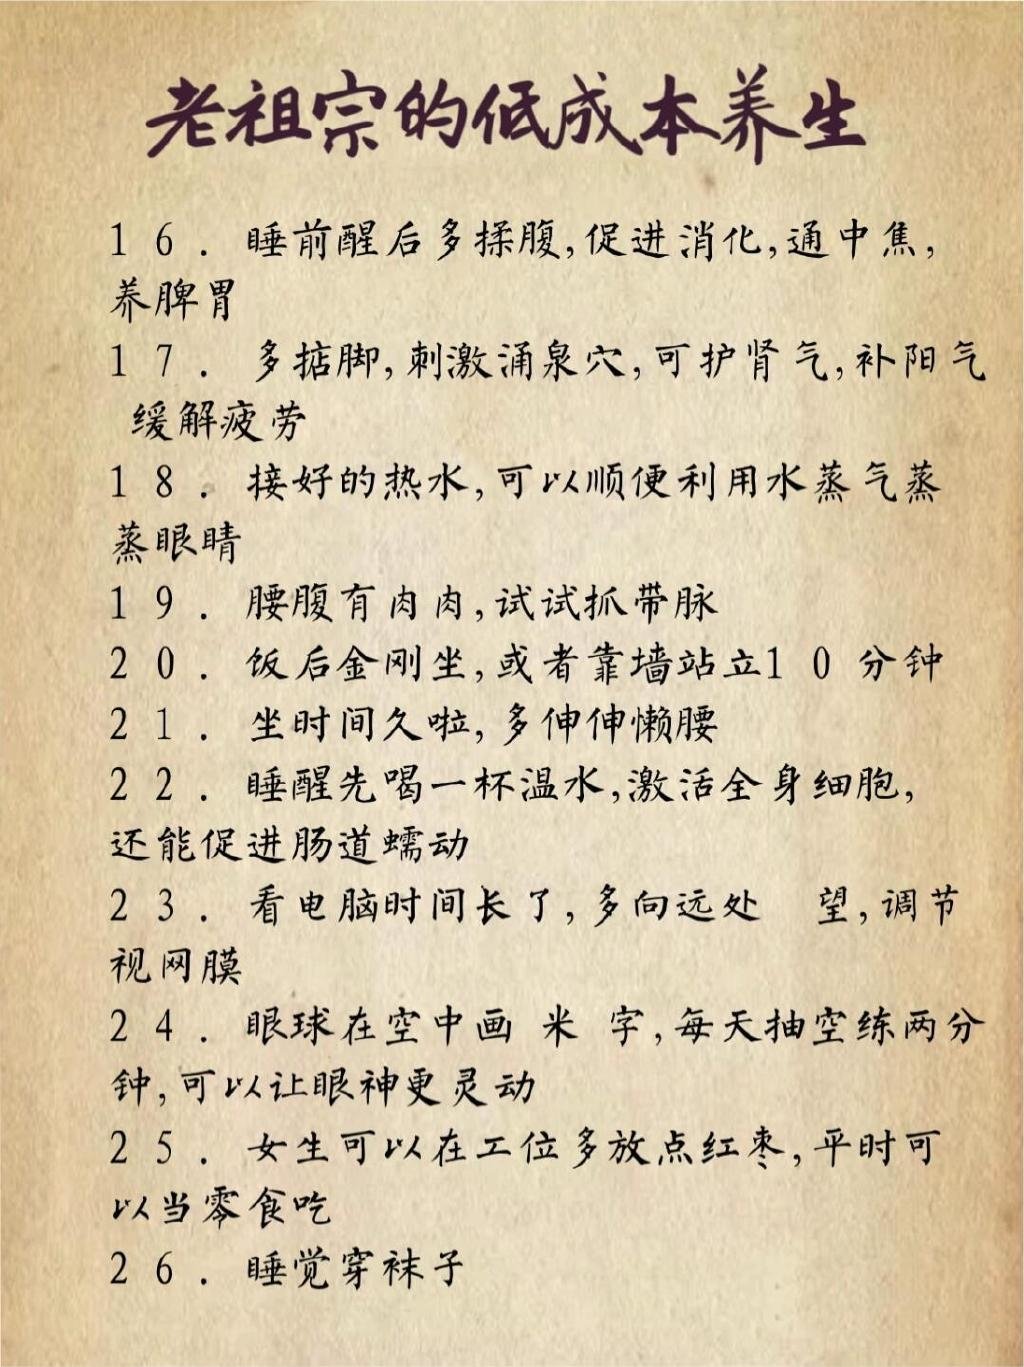 老祖宗的低成本养生
16. 睡前醒后多揉腹,促进消化,通中焦,
养脾胃
17. 多掂脚,刺激涌泉穴,可护肾气,补阳气
缓解疲劳
18. 接好的热水,可以顺便利用水蒸气蒸
蒸眼睛
19. 腰腹有肉肉,试试抓带脉
20. 饭后金刚坐,或者靠墙站立10分钟
21. 坐时间久啦,多伸伸懒腰
22. 睡醒先喝一杯温水,激活全身细胞,
还能促进肠道蠕动
23. 看电脑时间长了,多向远处 望,调节
视网膜
24. 眼球在空中画 米 字,每天抽空练两分
钟,可以让眼神更灵动
25. 女生可以在工位多放点红枣,平时可
以当零食吃
26. 睡觉穿袜子